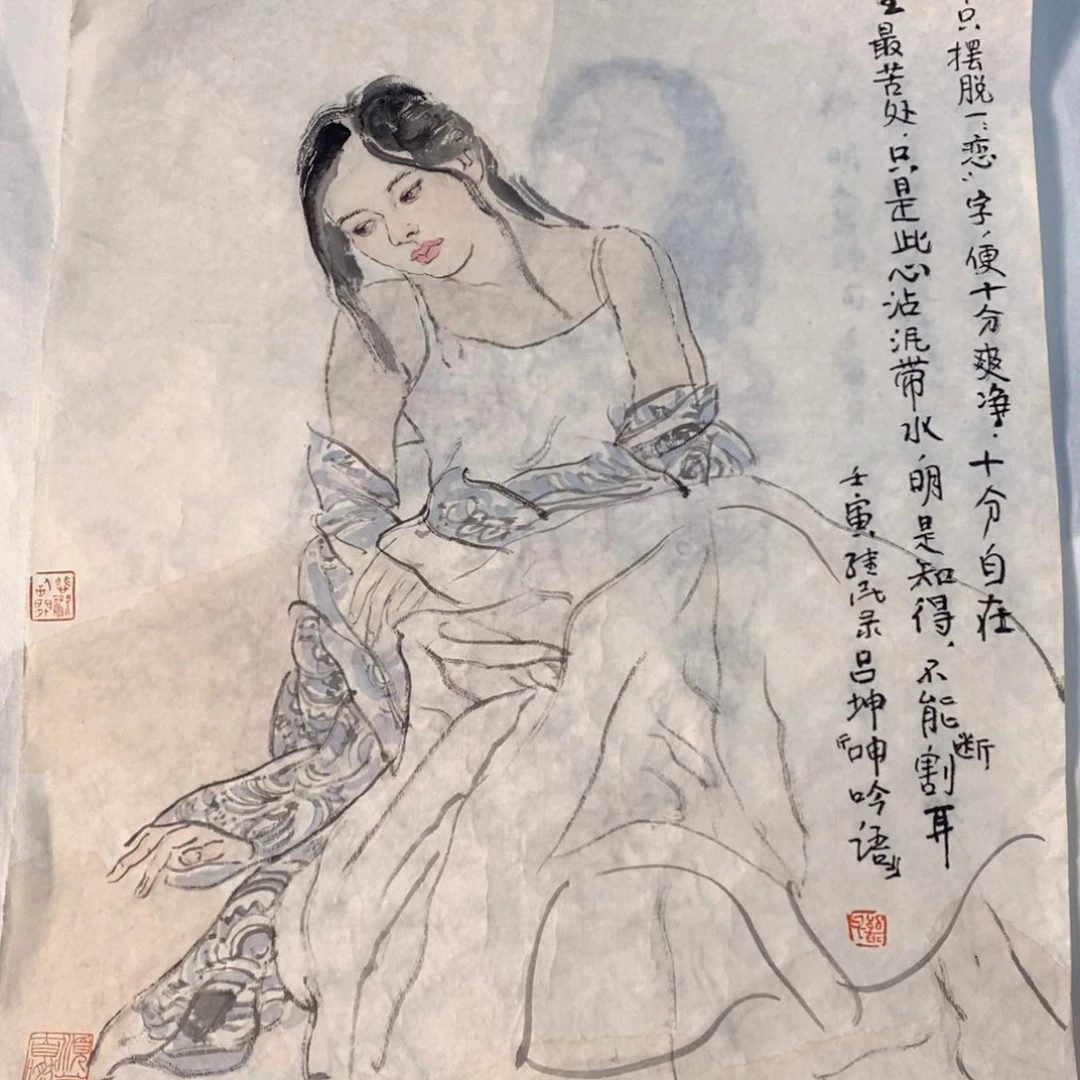 只摆脱一“恋”字，便十分爽净，十分自在
最苦处，只是此心沾泥带水，明是知得，不能割断耳
壬寅 录吕坤『呻吟语』